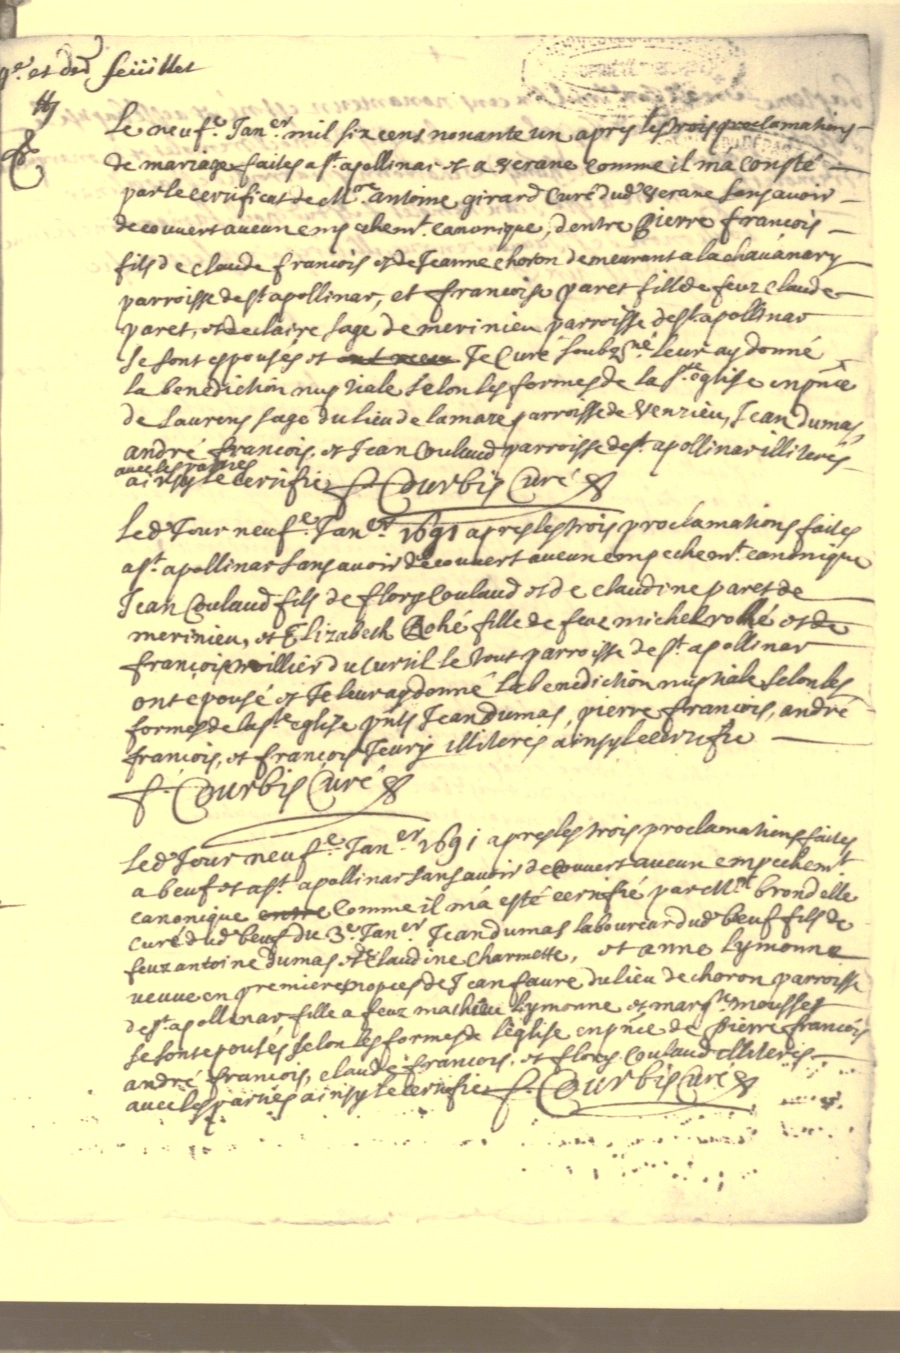 et dr feüillet
Le neuf.e Jan.er mil six cens nonante un apres les trois proclamations
de mariage faites a st. apollinar et a verane comme il ma consté
par le certificat de M.re antoine girard Curé dud. verane sans avoir
decouvert aucun empechemt. canonique, d'entre pierre francois
fils de claude francois et de Jeanne choron demeurant a la chavanary
parroisse de st. apollinar, et francoise paret fille de feuz claude
paret, et de claire sage de merinieu parroisse de st. apollinar
se sont espousés et Je Curé soubzné. leur ay donné
la benediction nuptiale selon les formes de la ste église en pñce
de Laurens sage du lieu de la maze parroisse de venzieu, Jean dumas
andré francois, et Jean Coulaud parroisse de st. apollinar illiteres
avec les parties
ainsy le certifie f. Courbis Curé
Led. Jour neuf.e Jan.er 1691 apres les trois proclamations faites
a st. apollinar sans avoir decouvert aucun empechemt. canonique
Jean Coulaud fils de flory Coulaud et de claudine paret de
merinieu, et Elizabeth Rohé fille de feu michel rohé et de
françoise roillier du Curtil le tout parroisse de st. apollinar
ont epousé et Je leur ay donné la benediction nuptiale selon les
formes de la ste eglise pñts Jean Dumas, pierre francois, andré
francois, et francois Jeury illiteres ainsy le certifie
f. Courbis Curé
Led. Jour neuf.e Jan.er 1691 apres les trois proclamations faites
a beuf et a st. apollinar sans avoir decouvert aucun empechemt.
canonique entre comme il m'a esté certifié par M.re brondelle
curé dud. beuf du 3.e Jan.er Jean dumas laboureur dud. beuf fils de
feuz antoine dumas et Claudine Charmette, et anne lymonne
veuve en premieres nopces de Jean faure du lieu de choron parroisse
de st. apollinar fille a feuz mathieu lymonne et marg.te mousset
se sont epousés selon les formes de l'église en pñce de pierre francois
andré francois, claude francois, et flory Coulaud illiteres
avec les parties ainsy le certifie f. Courbis Curé